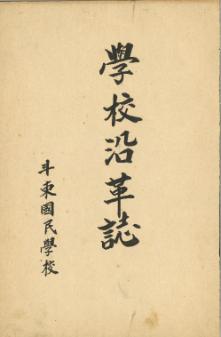 學校沿革誌
斗東國民學校